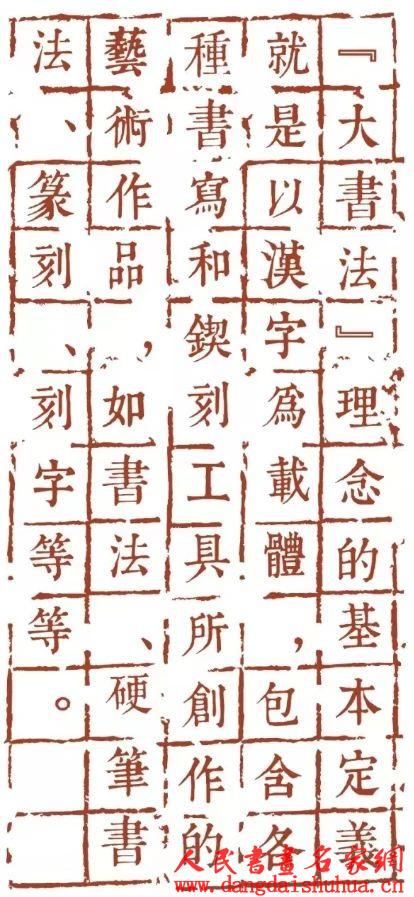 『大書法』理念的基本定義
就是以漢字爲載體，包含各
種書寫和鍥刻工具所創作的
藝術作品，如書法、硬筆書
法、篆刻、刻字等等。
人民書畫名家網
www.dangdaishuhua.cn